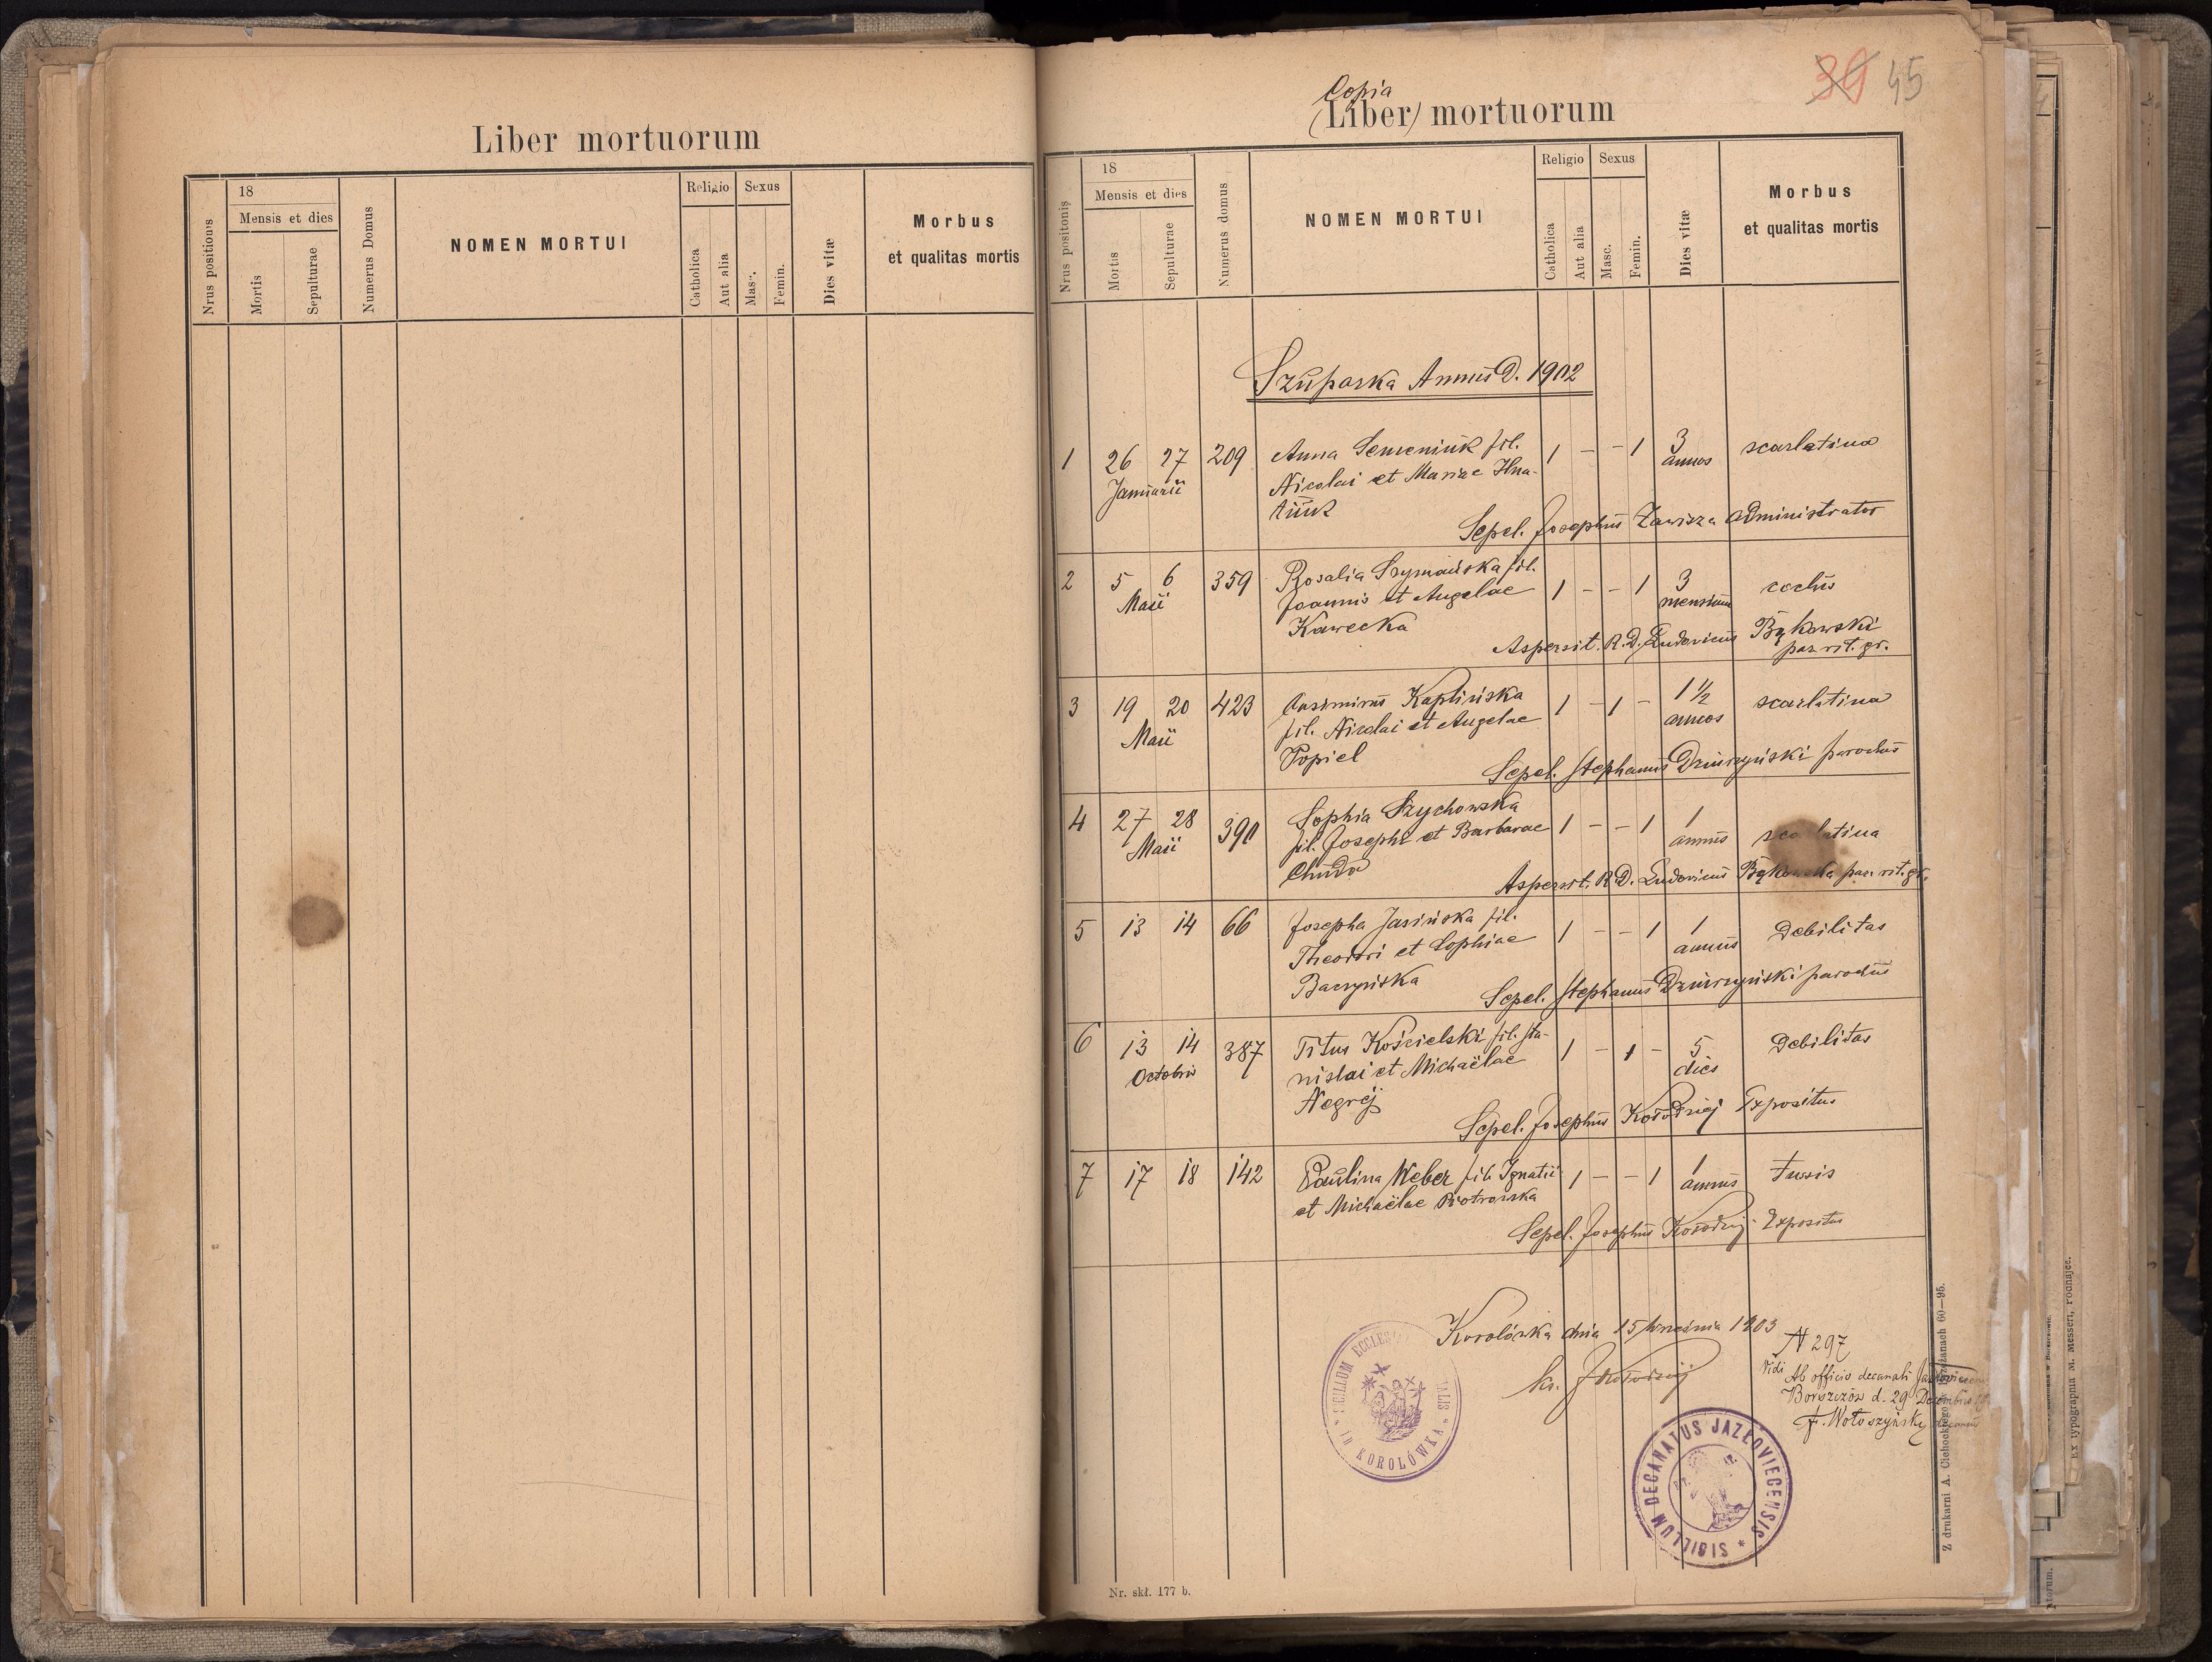 Liber mortuorum
Nrus positionis
18
Mensis et dies
Mortis
Sepulturae
Numerus Domus
NOMEN MORTUI
Religio
Catholica
Aut alia
Sexus
Masc.
Femin.
Dies vitæ
Morbus
et qualitas mortis
39 45
Copia
(Liber) mortuorum
Nrus positonis
18
Mensis et dies
Mortis
Sepulturae
Numerus domus
NOMEN MORTUI
Religio
Catholica
Aut alia
Sexus
Masc.
Femin.
Dies vitæ
Morbus
et qualitas mortis
Szuparka Annus D. 1902
1 26 27 209 Anna Semeniuk fil. 1 - - 1 3 scarlatina
Januarii Nicolai et Mariae Hna- annos
tiuk
Sepel. Josephus Zawisza administrator
2 5 6 359 Rosalia Szymańska fil. 1 - - 1 3
Maii Joannis et Angelae mensium
Kawecka
Aspersit. R. D. Ludovicus Bykowski
par. rit. gr.
3 19 20 423 Casimirus Kaplińska 1 - 1 - 1 1/2 scarlatina
Maii fil. Nicolai et Angelae annos
Popiel
Sepel. Stephanus Dziurzyński parochus
4 27 28 390 Sophia Szychowska 1 - - 1 1 scarlatina
Maii fil. Josephi et Barbarae annus
Chuda
Aspersit. R. D. Ludovicus par. rit. gr.
5 13 14 66 Josepha Jasińska fil. 1 - - 1 1 Debilitas
Theodori et Sophiae annus
Baczyńska
Sepel. Stephanus Dziurzyński parochus
6 13 14 387 Titus Kościelski fil. Sta- 1 - 1 - 5 Debilitas
Octobris nislai et Michaëlae dies
Negrej
Sepel. Josephus Kołodziej Expositus
7 17 18 142 Paulina Weber fil. Ignatii 1 - - 1 1 tussis
et Michaëlae Piotrowska annus
Sepel. Josephus Kołodziej Expositus
Korolówka dnia 15 Września 1903
ks. J Kołodziej
N 297
Vidi
Ab officio decanali
Borszczów d. 29 Decembris
F. Wołoszyński
SIGILLUM IN KOROLÓWKA
SIGILLUM DECANATUS JAZŁOVIECENSIS
Nr. skł. 177 b.
Z drukarni A. Ciehockiego w Brzeżanach 60—95.
Ex typographia M. Messeri,